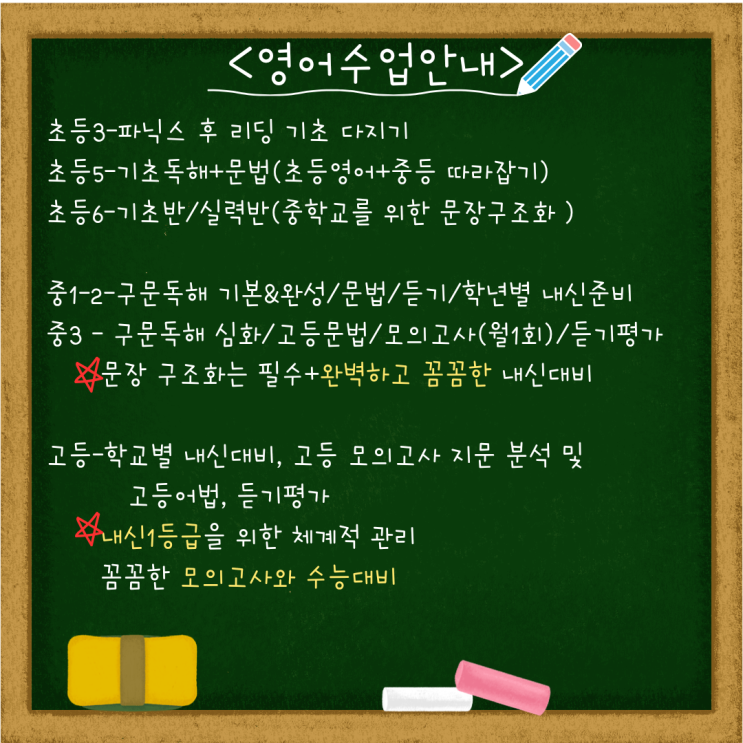 <영어수업안내>
초등3-파닉스 후 리딩 기초 다지기
초등5-기초독해+문법(초등영어+중등 따라잡기)
초등6-기초반/실력반(중학교를 위한 문장구조화 )
중1-2-구문독해 기본&완성/문법/듣기/학년별 내신준비
중3 - 구문독해 심화/고등문법/모의고사(월1회)/듣기평가
문장 구조화는 필수+완벽하고 꼼꼼한 내신대비
고등-학교별 내신대비, 고등 모의고사 지문 분석 및
고등어법, 듣기평가
내신1등급을 위한 체계적 관리
꼼꼼한 모의고사와 수능대비